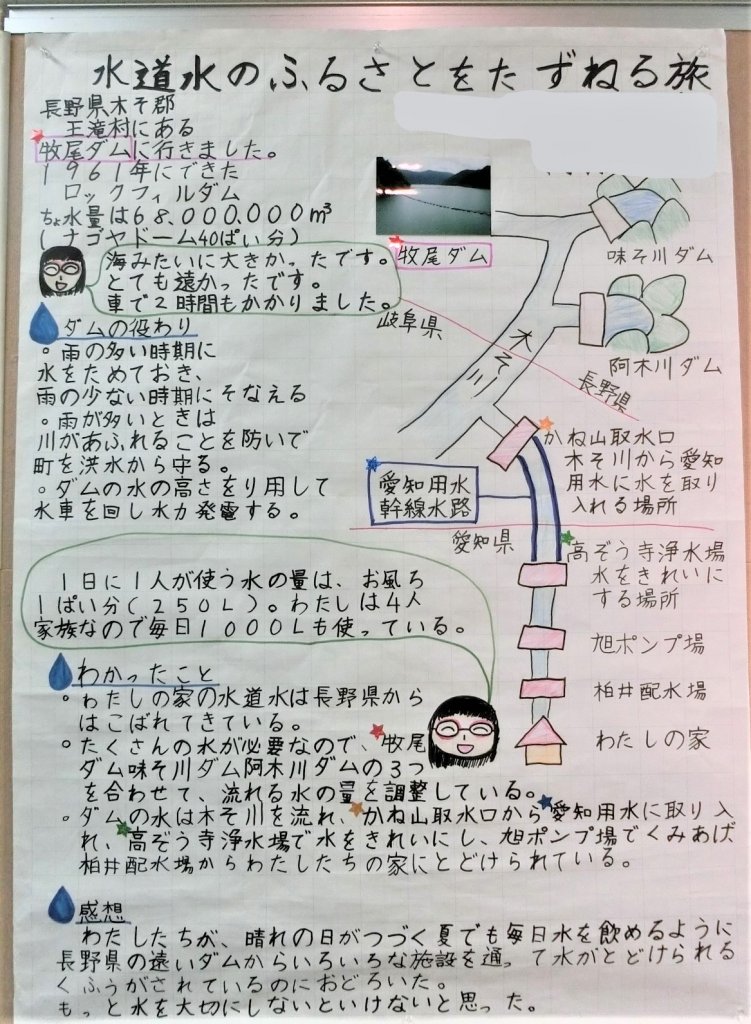 水道水のふるさとをたずねる旅
長野県木そ郡
王滝村にある
牧尾ダムに行きました。
1961年にできた
ロックフィルダム
ちょ水量は68.000.000㎥
(ナゴヤドーム40ぱい分)
海みたいに大きかったです。
とても遠かったです。
車で2時間もかかりました。
ダムの役わり
。雨の多い時期に
水をためておき、
雨の少ない時期にそなえる
。雨が多いときは
川があふれることを防いで
町を洪水から守る。
。ダムの水の高さをり用して
水車を回し水力発電する。
牧尾ダム
味そ川ダム
岐阜県
木そ川
阿木川ダム
長野県
かね山取水口
木そ川から愛知
用水に水を取り
入れる場所
愛知用水
幹線水路
愛知県
高ぞう寺浄水場
水をきれいに
する場所
旭ポンプ場
柏井配水場
わたしの家
1日に1人が使う水の量は、お風ろ
1ぱい分(250L)。わたしは4人
家族なので毎日1000Lも使っている。
わかったこと
。わたしの家の水道水は長野県から
はこばれてきている。
。たくさんの水が必要なので、牧尾
ダム味そ川ダム阿木川ダムの3つ
を合わせて、流れる水の量を調整している。
。ダムの水は木そ川を流れ、かね山取水口から愛知用水に取り入
れ、高ぞう寺浄水場で水をきれいにし、旭ポンプ場でくみあげ
柏井配水場からわたしたちの家にとどけられている。
感想
わたしたちが、晴れの日がつづく夏でも毎日水を飲めるように
長野県の遠いダムからいろいろな施設を通って水がとどけられる
くふうがされているのにおどろいた。
もっと水を大切にしないといけないと思った。